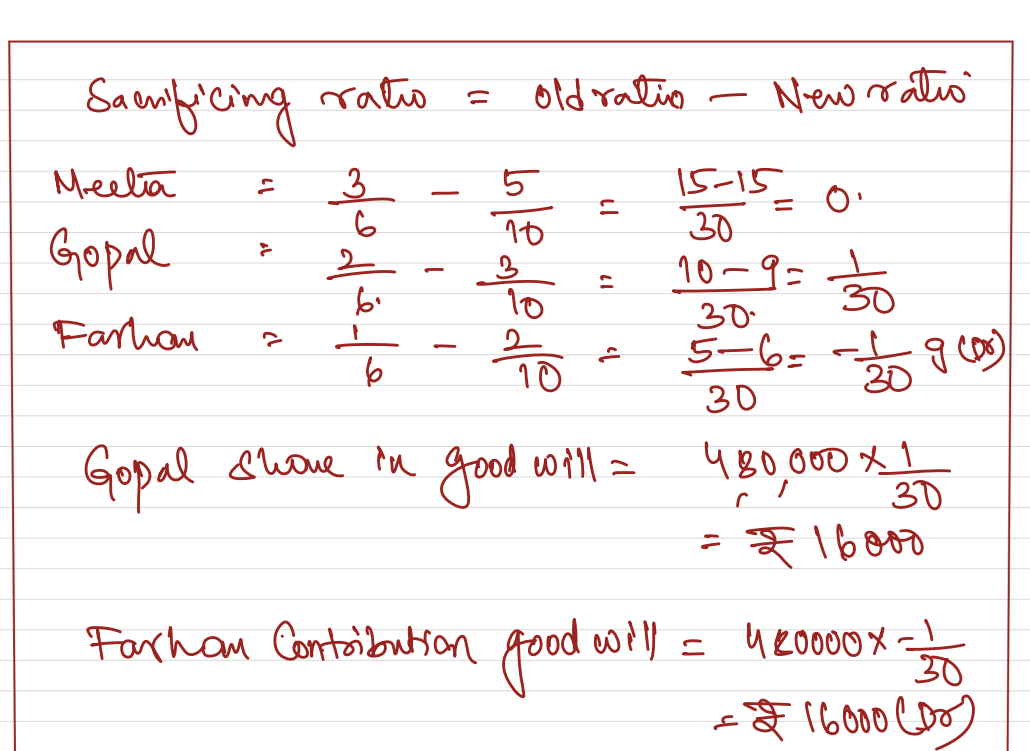 Sacrificing ratio = old ratio - New ratio
Meeta = 3/6 - 5/10 = 15-15/30 = 0.
Gopal = 2/6. - 3/10 = 10-9/30. = 1/30
Farhan = 1/6 - 2/10 = 5-6/30 = -1/30 g (Dr)
Gopal share in good will = 480,000 x 1/30
= ₹ 16000
Farhan Contribution good will = 480000 x -1/30
= ₹ 16000 (Dr)